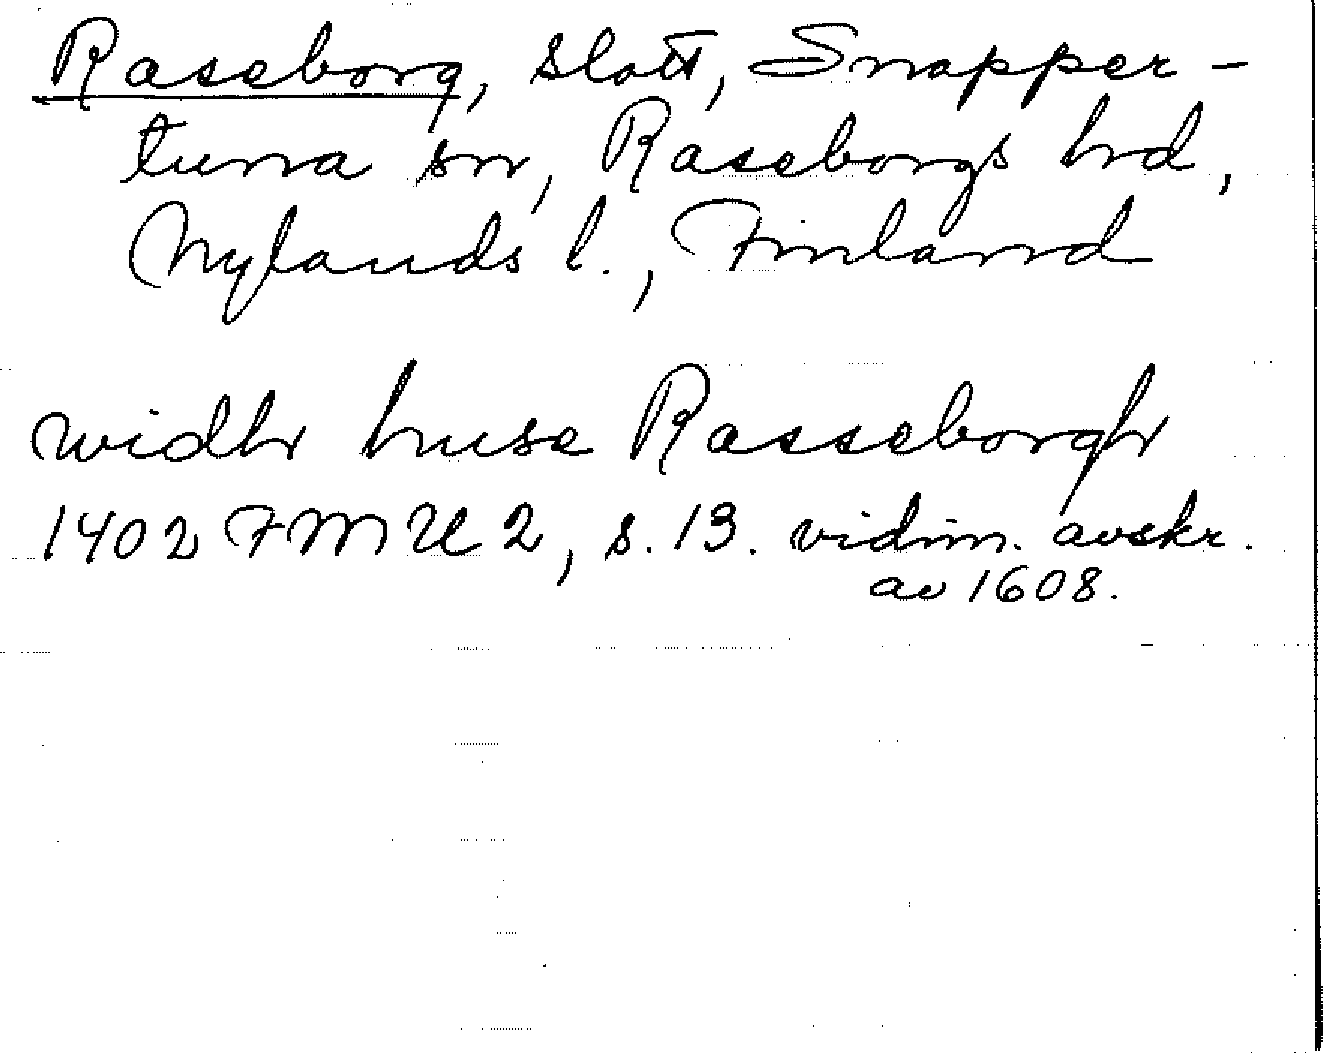 Raseborg, slott, Snapper-
tuna sn, Raseborgs hrd,
Nylands l., Finland
widh huse Rasseborgh
1402 FMU 2, s. 13. vidim. avskr.
av 1608.